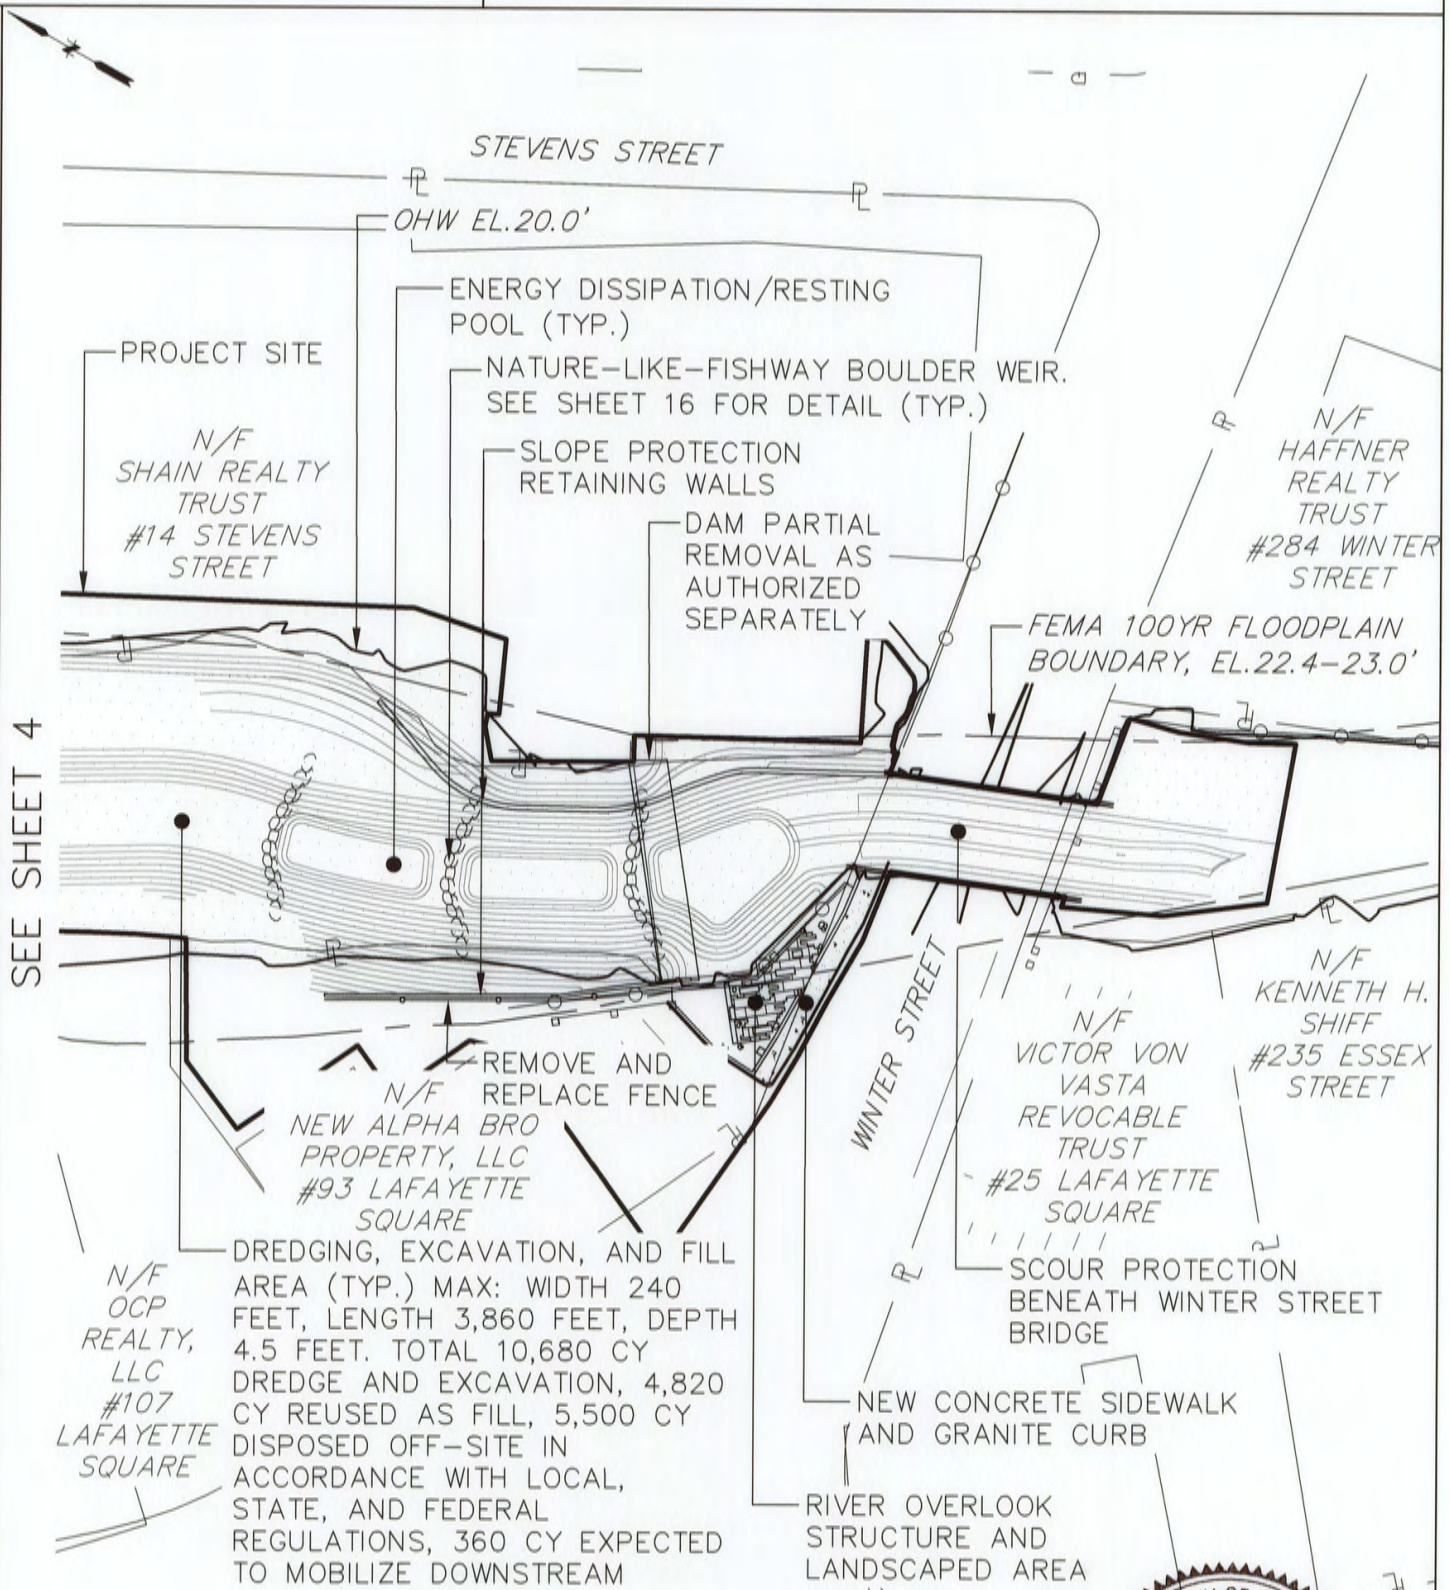 STEVENS STREET
OHW EL.20.0'
ENERGY DISSIPATION/RESTING
POOL (TYP.)
PROJECT SITE
NATURE-LIKE-FISHWAY BOULDER WEIR.
SEE SHEET 16 FOR DETAIL (TYP.)
N/F
SHAIN REALTY
TRUST
#14 STEVENS
STREET
SLOPE PROTECTION
RETAINING WALLS
DAM PARTIAL
REMOVAL AS
AUTHORIZED
SEPARATELY
N/F
HAFFNER
REALTY
TRUST
#284 WINTER
STREET
FEMA 100YR FLOODPLAIN
BOUNDARY, EL.22.4-23.0'
SEE SHEET 4
REMOVE AND
REPLACE FENCE
N/F
NEW ALPHA BRO
PROPERTY, LLC
#93 LAFAYETTE
SQUARE
WINTER STREET
N/F
VICTOR VON
VASTA
REVOCABLE
TRUST
#25 LAFAYETTE
SQUARE
N/F
KENNETH H.
SHIFF
#235 ESSEX
STREET
N/F
OCP
REALTY,
LLC
#107
LAFAYETTE
SQUARE
DREDGING, EXCAVATION, AND FILL
AREA (TYP.) MAX: WIDTH 240
FEET, LENGTH 3,860 FEET, DEPTH
4.5 FEET. TOTAL 10,680 CY
DREDGE AND EXCAVATION, 4,820
CY REUSED AS FILL, 5,500 CY
DISPOSED OFF-SITE IN
ACCORDANCE WITH LOCAL,
STATE, AND FEDERAL
REGULATIONS, 360 CY EXPECTED
TO MOBILIZE DOWNSTREAM
SCOUR PROTECTION
BENEATH WINTER STREET
BRIDGE
NEW CONCRETE SIDEWALK
AND GRANITE CURB
RIVER OVERLOOK
STRUCTURE AND
LANDSCAPED AREA